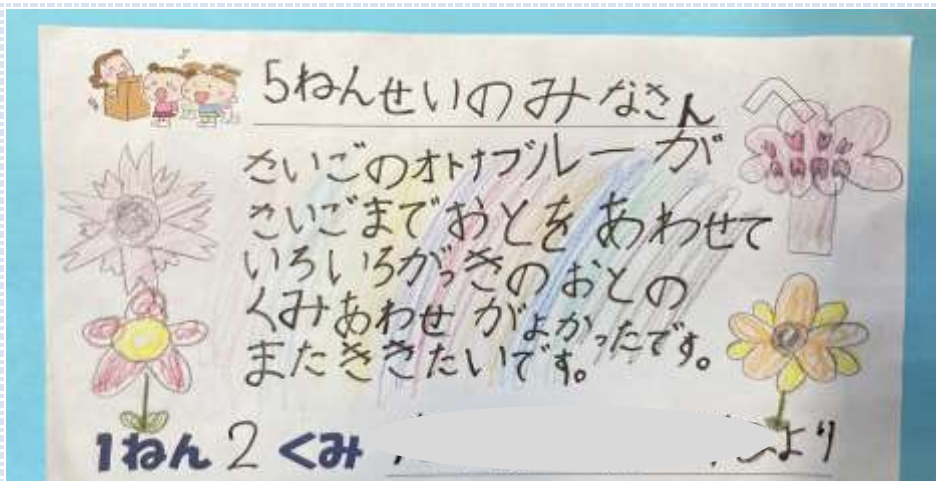 5ねんせいのみなさん
さいごのオトナブルーが
さいごまでおとをあわせて
いろいろがっきのおとの
くみあわせがよかったです。
またききたいです。
1ねん2くみ
より